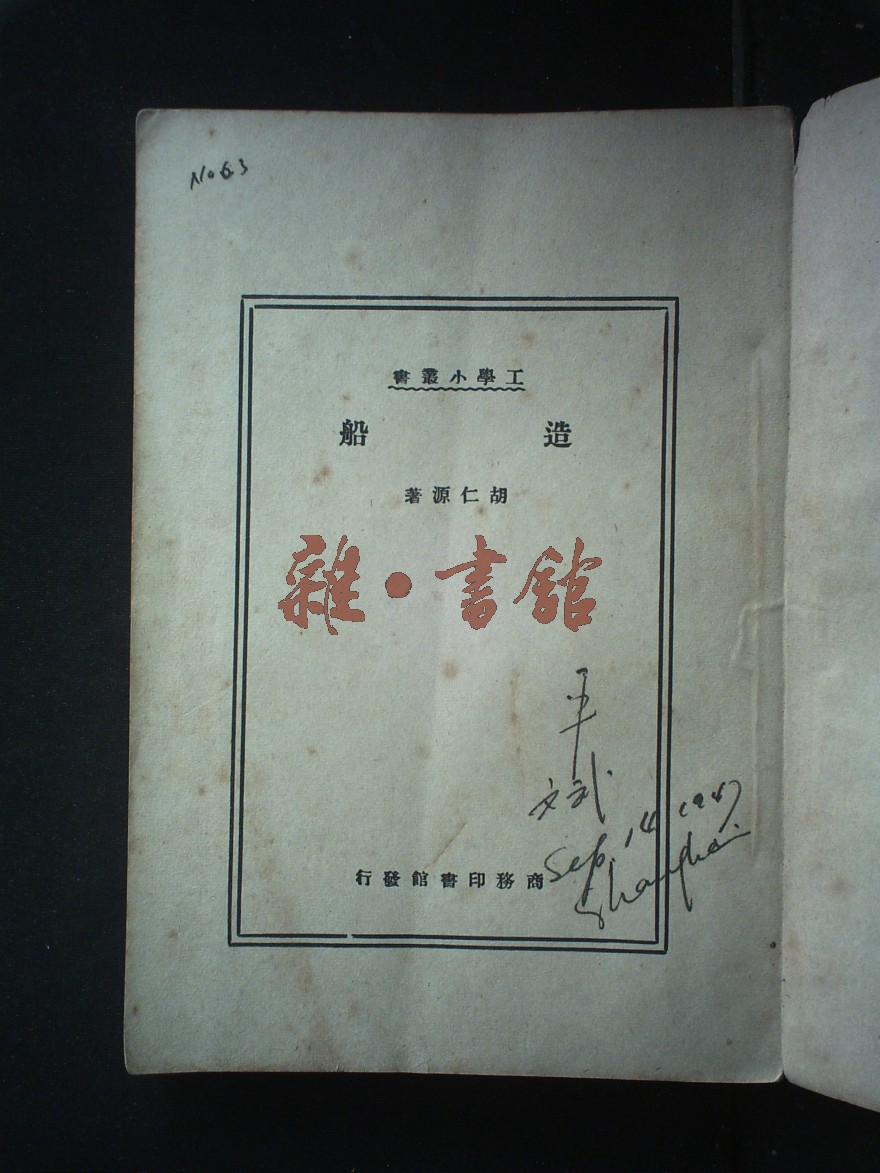 No 63
工學小叢書
造船
胡仁源著
雜·書館
文武
Sep. 14 1947
Shanghai
商務印書館發行